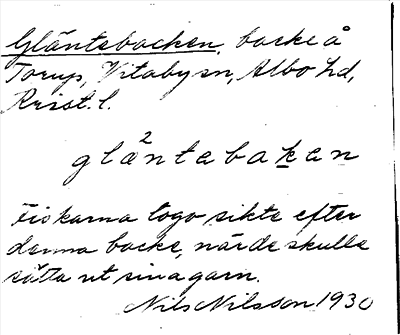 Gläntebacken, backe å
Torup, Vitaby sn, Albo hd,
Krist. l.
2
gläntebaḵen
Fiskarna togo sikte efter
denna backe, när de skulle
sätta ut sina garn.
Nils Nilsson 1930